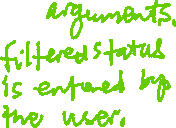 arguments.
filteredstatus
is entered by
the user.